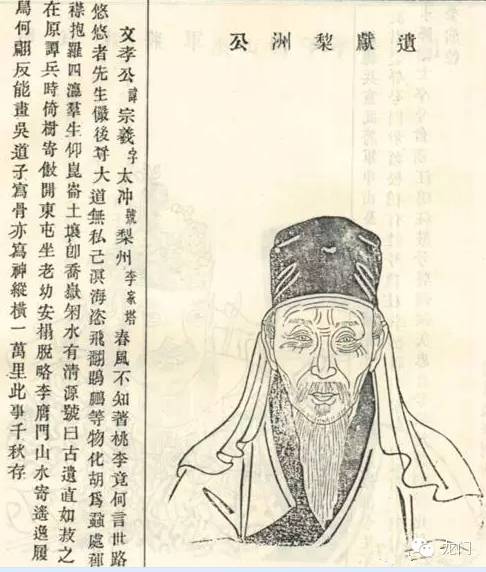 遺獻梨洲公
文孝公諱宗羲字太冲號梨州李家塔春風不知著桃李竟何言世路
悠悠者先生儼後尋大道無私己溟海恣飛翻鵾鵬等物化胡爲蝨處褌
襟抱羅四瀛羣生仰崑崙土壤卽喬嶽水有清源號曰古遺直如之
在原譚兵時倚樹寄傲閒東屯坐老幼安榻脫略李膺門山水寄遙逸履
舃何翩反能畫吳道子寫骨亦寫神縱橫一萬里此事千秋存
龙门